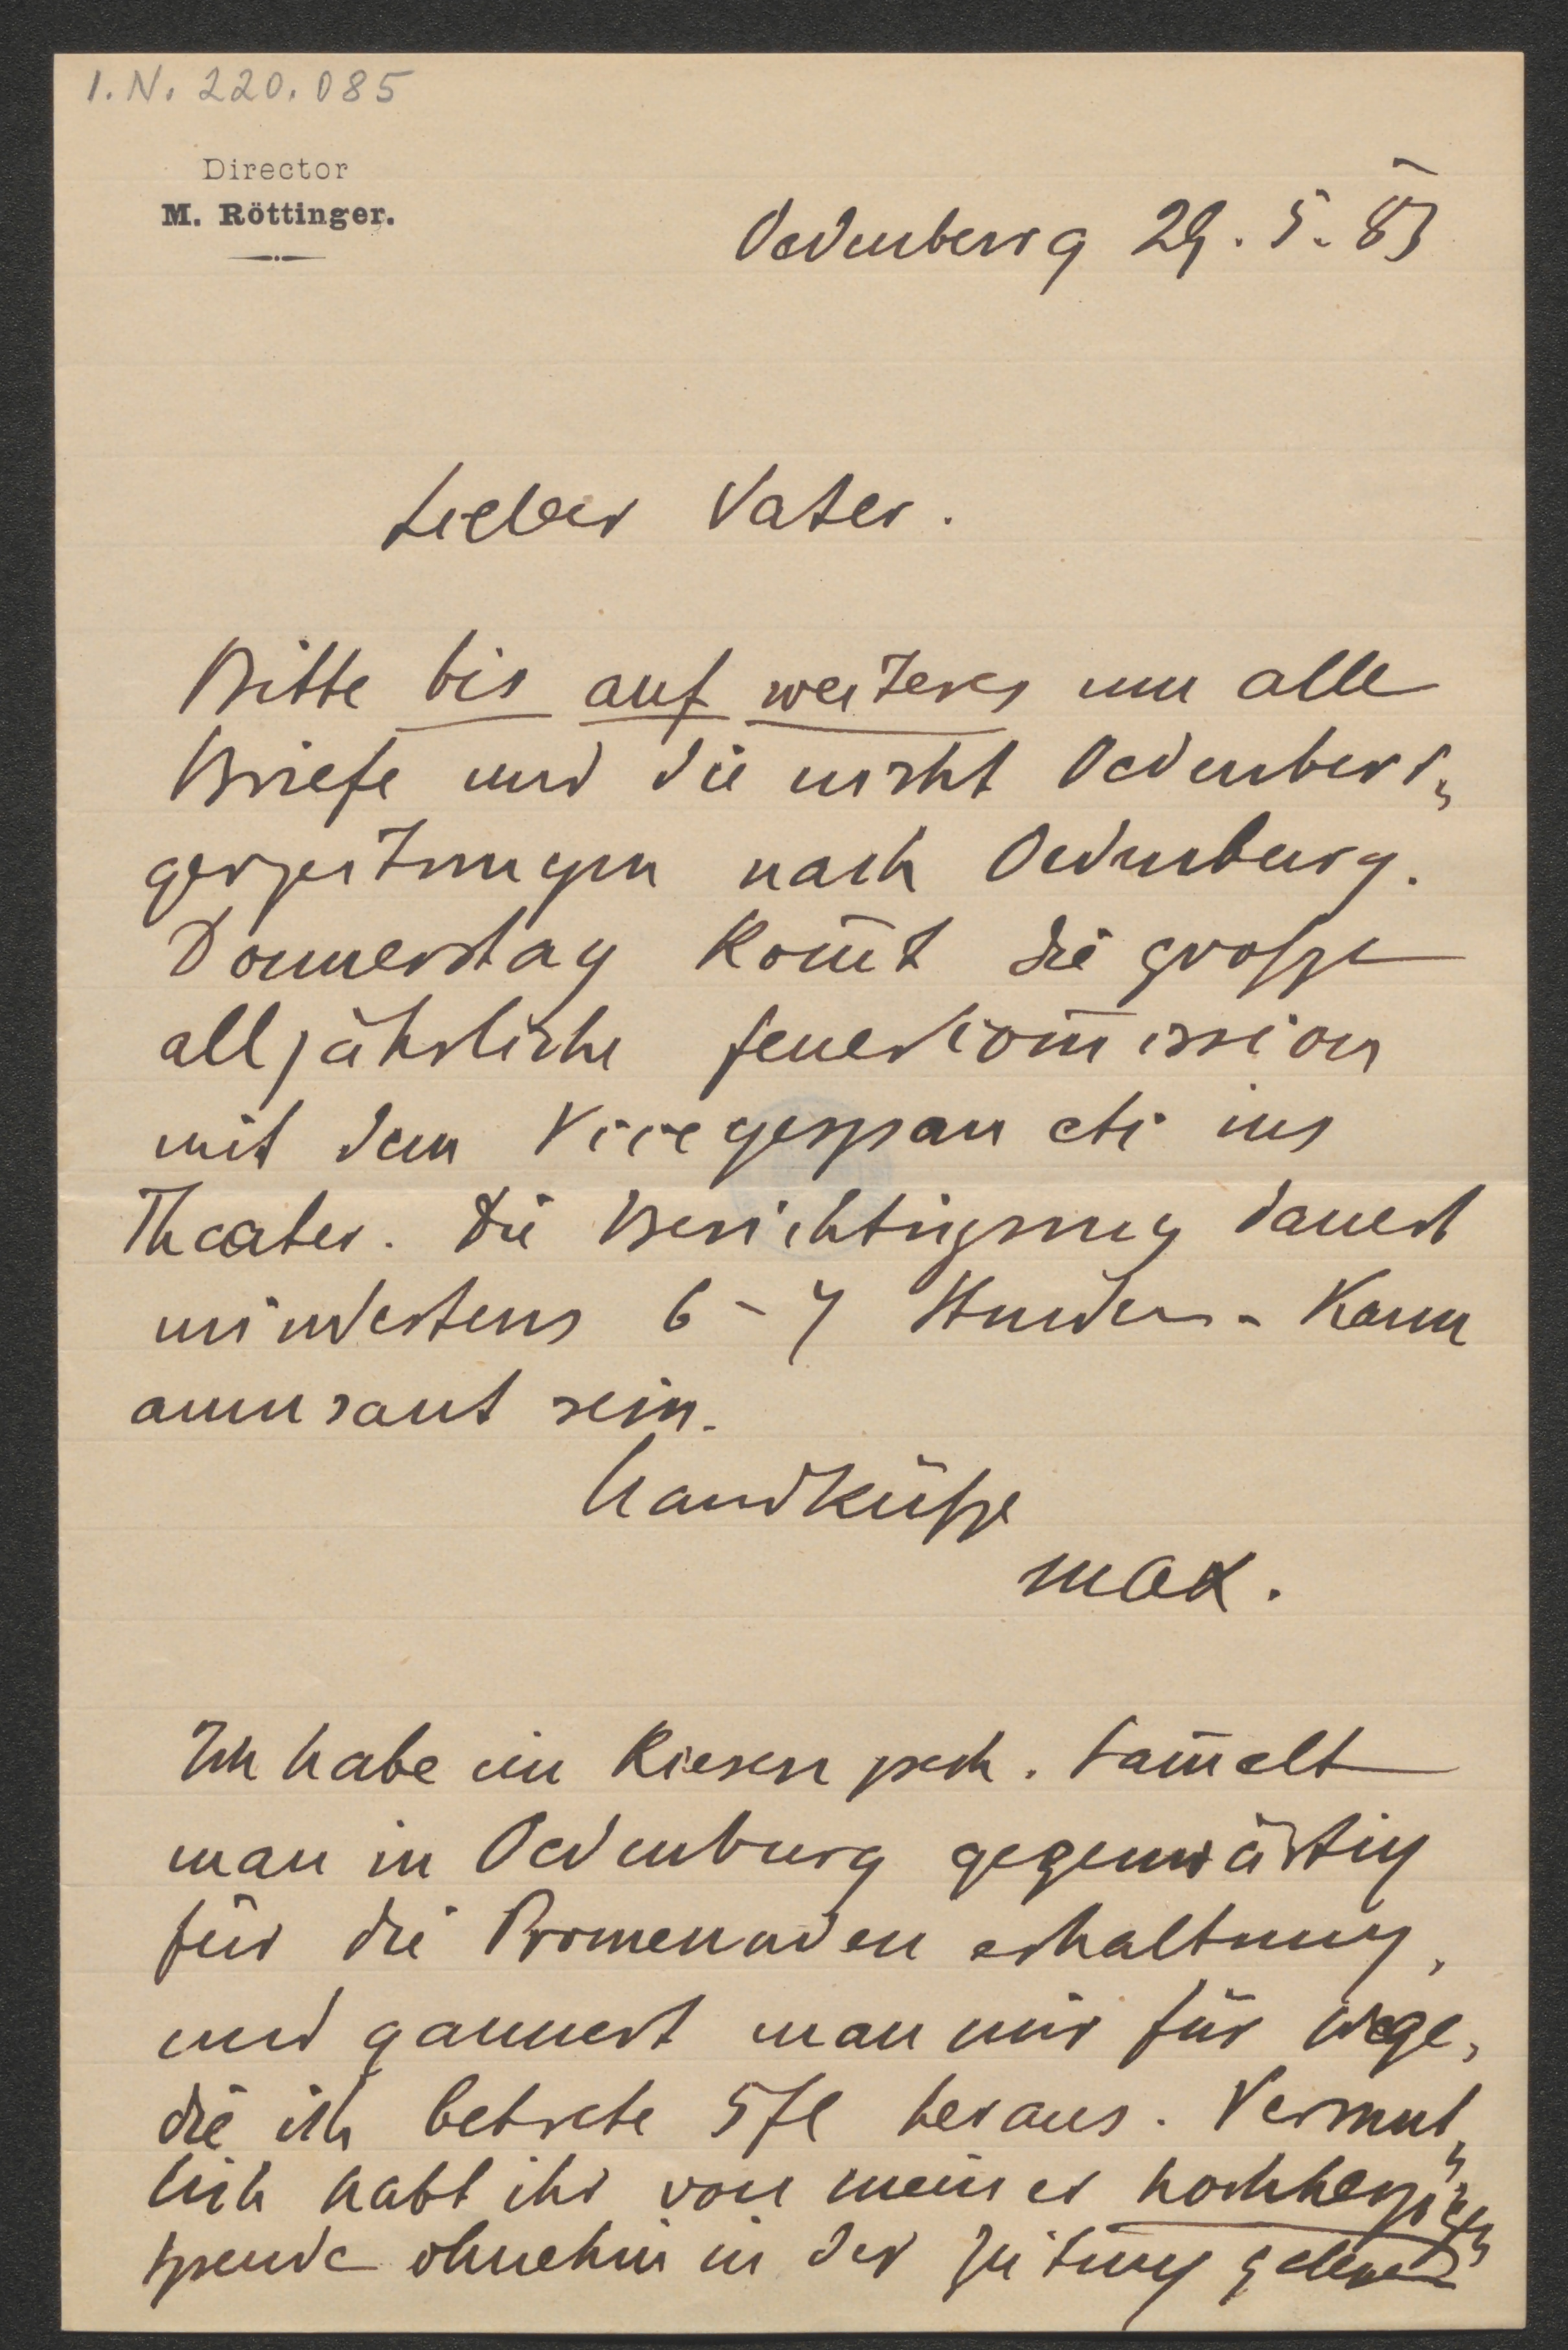 I.N. 220.085
Director
M. Röttinger.
Oedenburg 29. 5. 83
Lieber Vater.
Bitte bis auf weiteres um alle
Briefe und die nicht Oedenbur„
gerzeitungen nach Oedenburg.
Donnerstag kom̅t die große
alljährliche Feuerkom̅ission
mit dem Vicegespan etc ins
Theater. Die Besichtigung dauert
mindestens 6 – 7 Stunden. Kann
amusant sein.
Handküße
Max.
Ich habe ein Riesenpech. Sam̅elt
man in Oedenburg gegenwärtig
für die Promenadenerhaltung,
und gaunert man mir für Wege,
die ich betrete 5 fl heraus. Vermut„
lich habt ihr von meiner hochherzigen
Spende ohnehin in der Zeitung gelesen